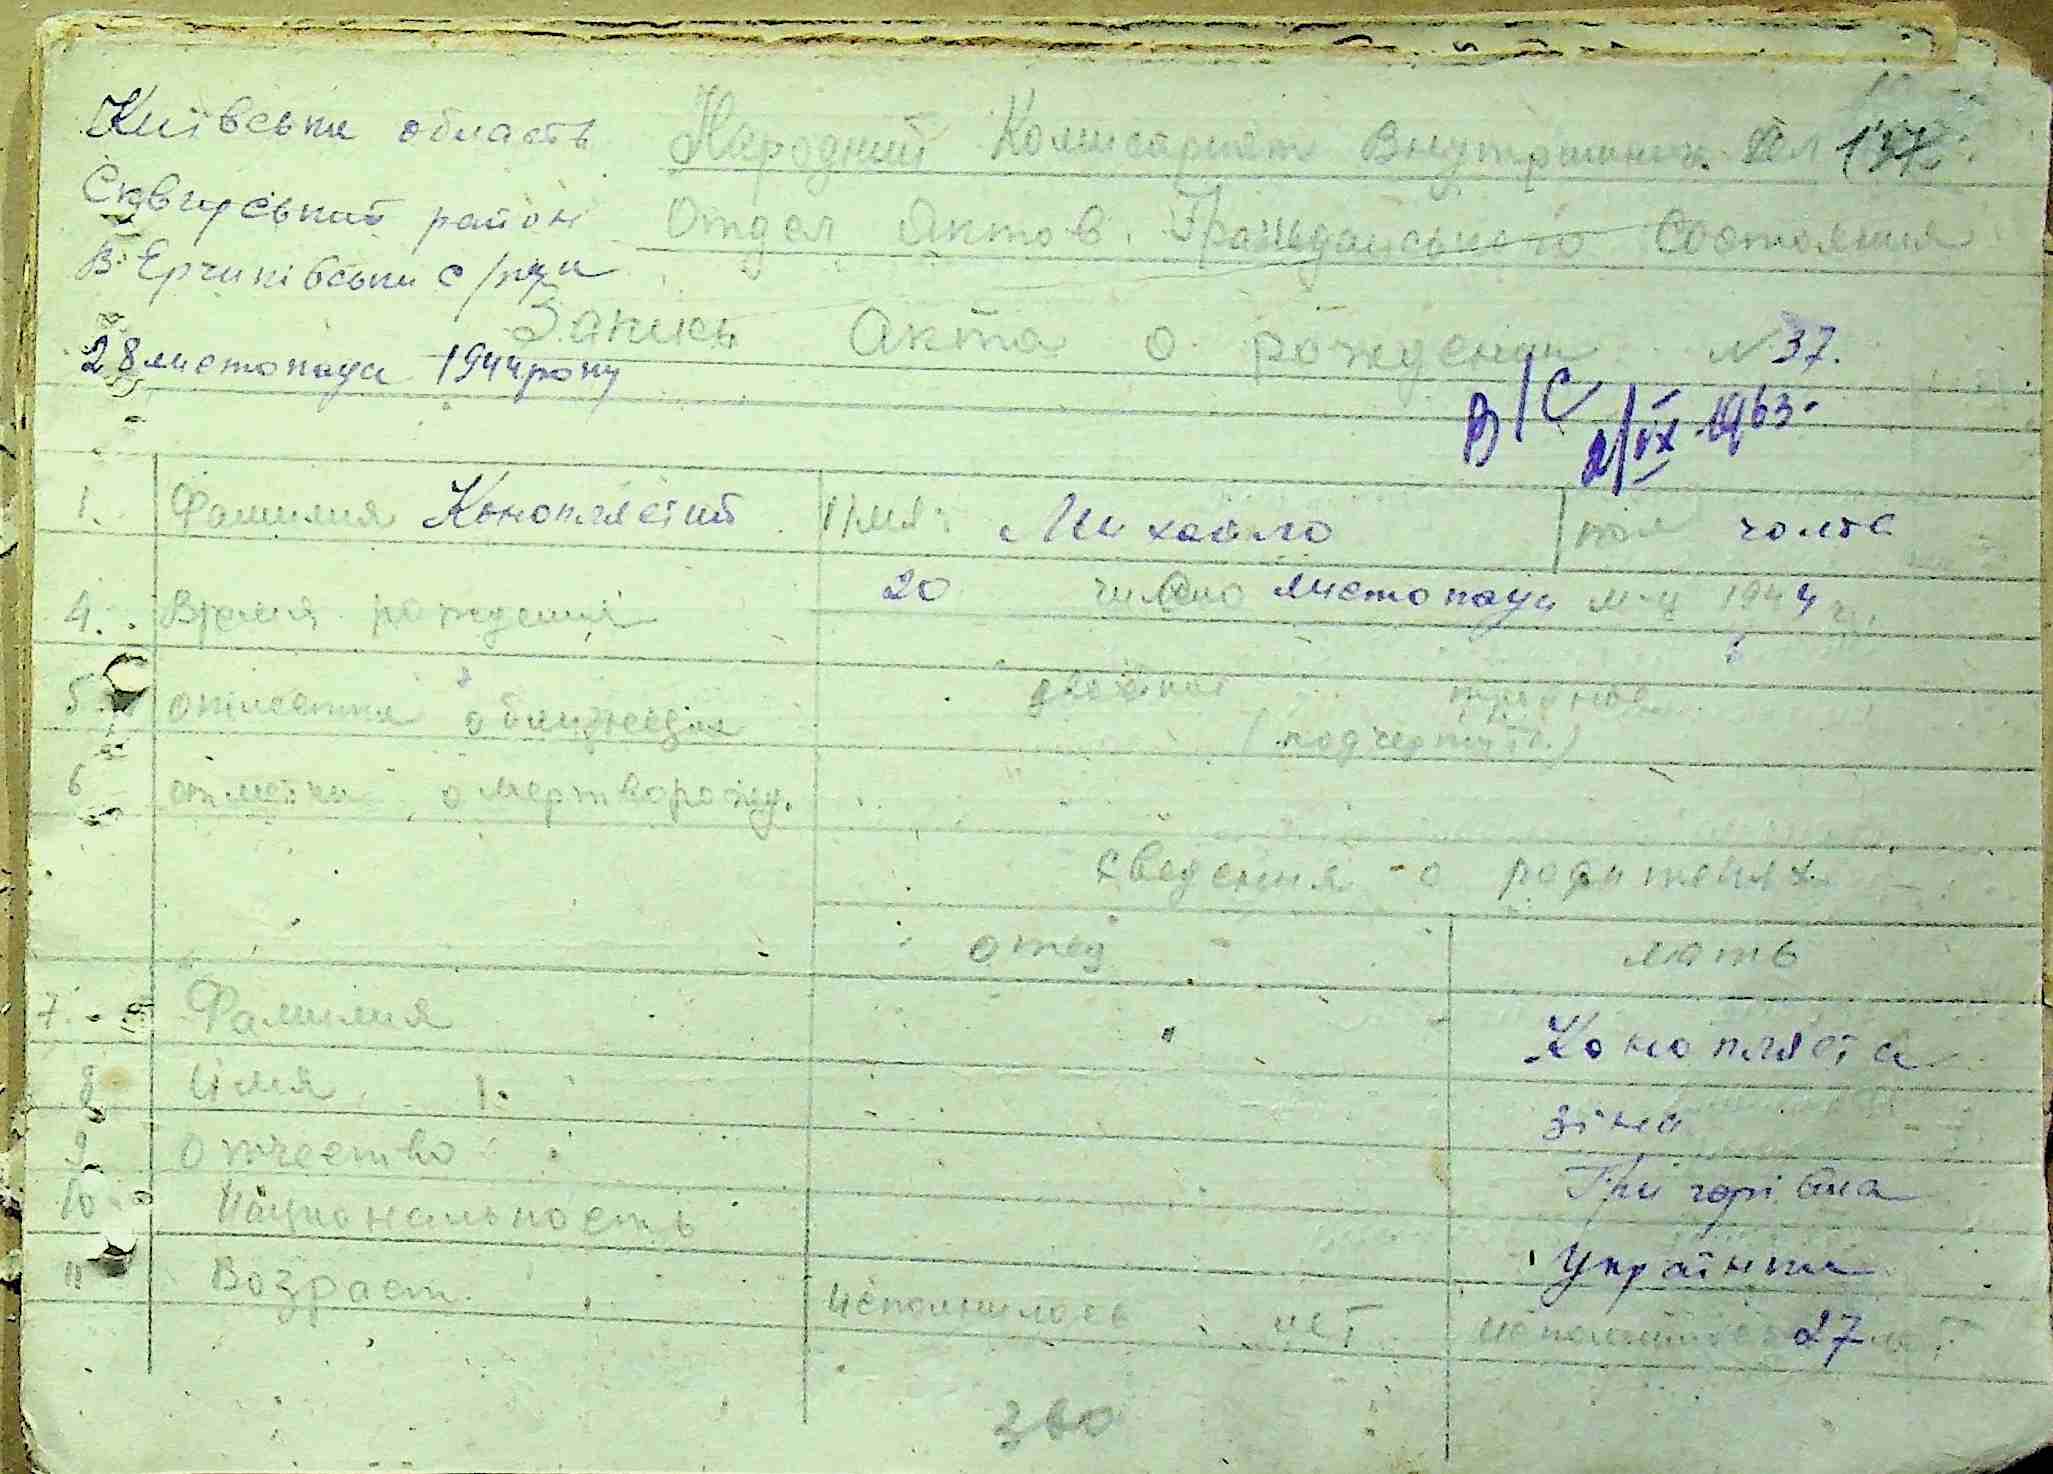 Київська область
Сквирський район
В-Єрчиківська с/рада
28 листопада 1944 року
Народний Комисариат Внутрінних Дел 137
Отдел Актов Гражданського Состояния
Запись Акта о рождении № 37.
В/С 2/IX-1963.
1. Фамилия Коноплястий Имя: Михайло пол чолов
4. Время рождения 20 число листопада м-ц 1944 г.
5 отметка о близнецах двойная тройная
(подчеркнуть)
6 отметка о мертворожд.
сведения о родителях
отец мать
7. Фамилия Конопляста
8 имя Зіна
9 отчество Григорівна
10 Национальность Українка
11 Возраст исполнилось лет исполнилось 27 лет
360